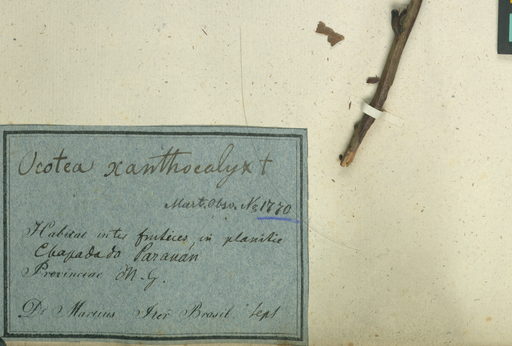 Ocotea xanthocalyx †
Mart. Obsv. No 1770
Habitat inter frutices, in planitie
Chapada do Paranán
Provinciae M. G.
Dr Martius Iter Brasil. Sept